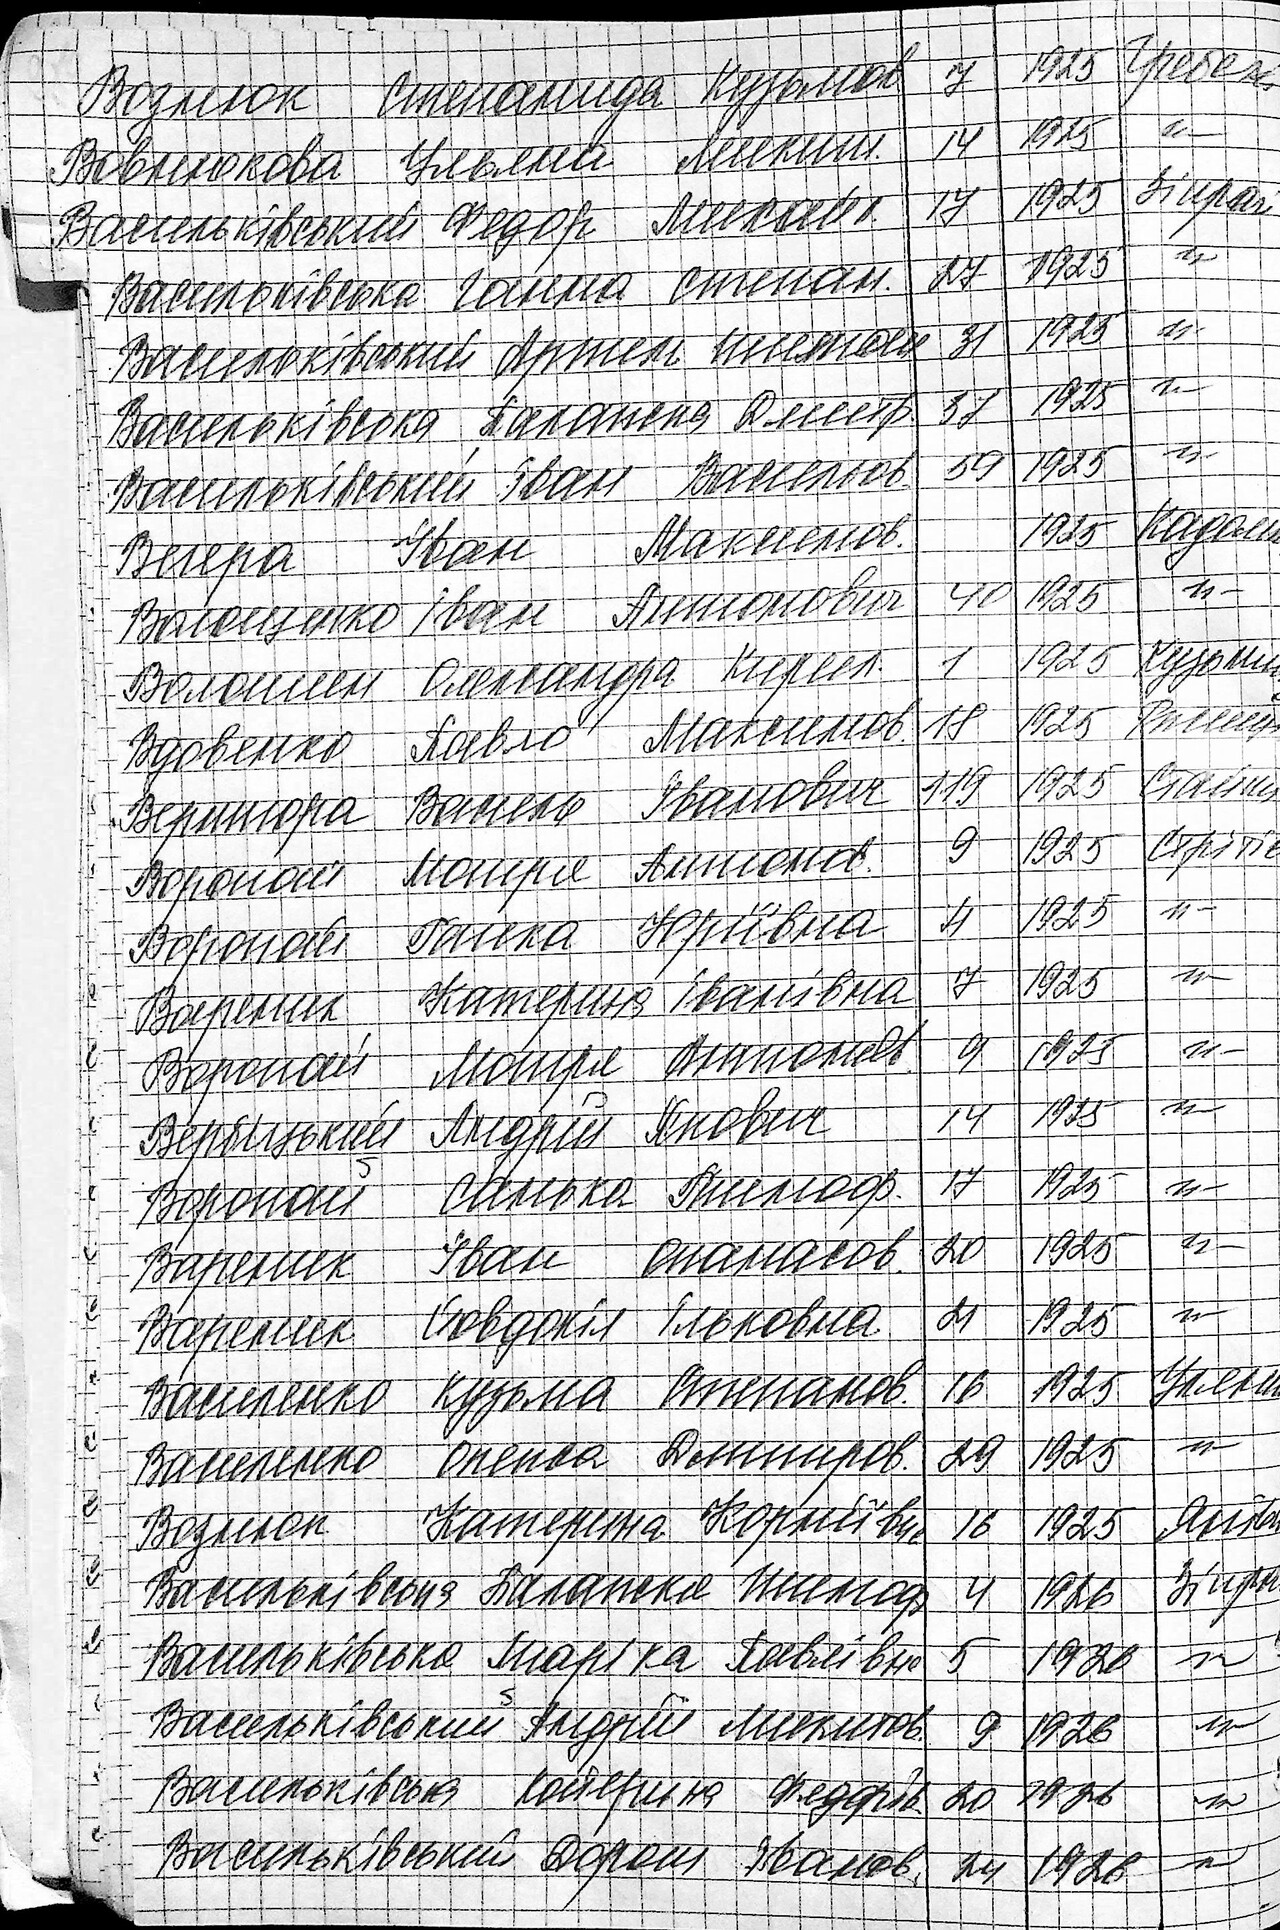 Вознюк Степанида Кузьмов 7 1925 Гребені
Вовнюкова Ульяна Микит. 14 1925 -"-
Васильківський Федор Михайл. 17 1925
Васильківська Ганна Степан. 27 1925 -"-
Васильківський Артем 31 1925 -"-
Васильківська Палажка Дмитр. 37 1925 -"-
Васильківський Іван Васильов. 59 1925 -"-
Вегера Іван Максимов. 1925 Кадом
Волощенко Іван Антонович 40 1925 -"-
Волошин Олександра Кирил. 1 1925 Кузьмин
Вдовенко Павло Максимов. 18 1925
Вернигора Василь Іванович 119 1925 Стайки
Воропай Мотря Антонов. 9 1925 Стріtів
Воропай Ганка Юріївна 4 1925 -"-
Вареник Катерина Іванівна 7 1925 -"-
Воропай Мотря Антонов. 9 1925 -"-
Вербицький Андрій Якович 14 1925 -"-
Воропай Санька Тимоф. 17 1925 -"-
Вареник Іван Опанасов. 20 1925 -"-
Вареник Явдокія Ільковна 21 1925 -"-
Василенко Кузьма Степанов. 16 1925 Уляни
Василенко Олекса Дмитров. 29 1925 -"-
Вознюк Катерина Корніївна 16 1925
Васильківська Палажка Тимоф 4 1926
Васильківська Марійка Павлівна 5 1926 -"-
Васильківський Андрій Микитов. 9 1926 -"-
Васильківська Катерина Федорів. 20 1926 -"-
Васильківський Дорош Іванов. 24 1926 -"-